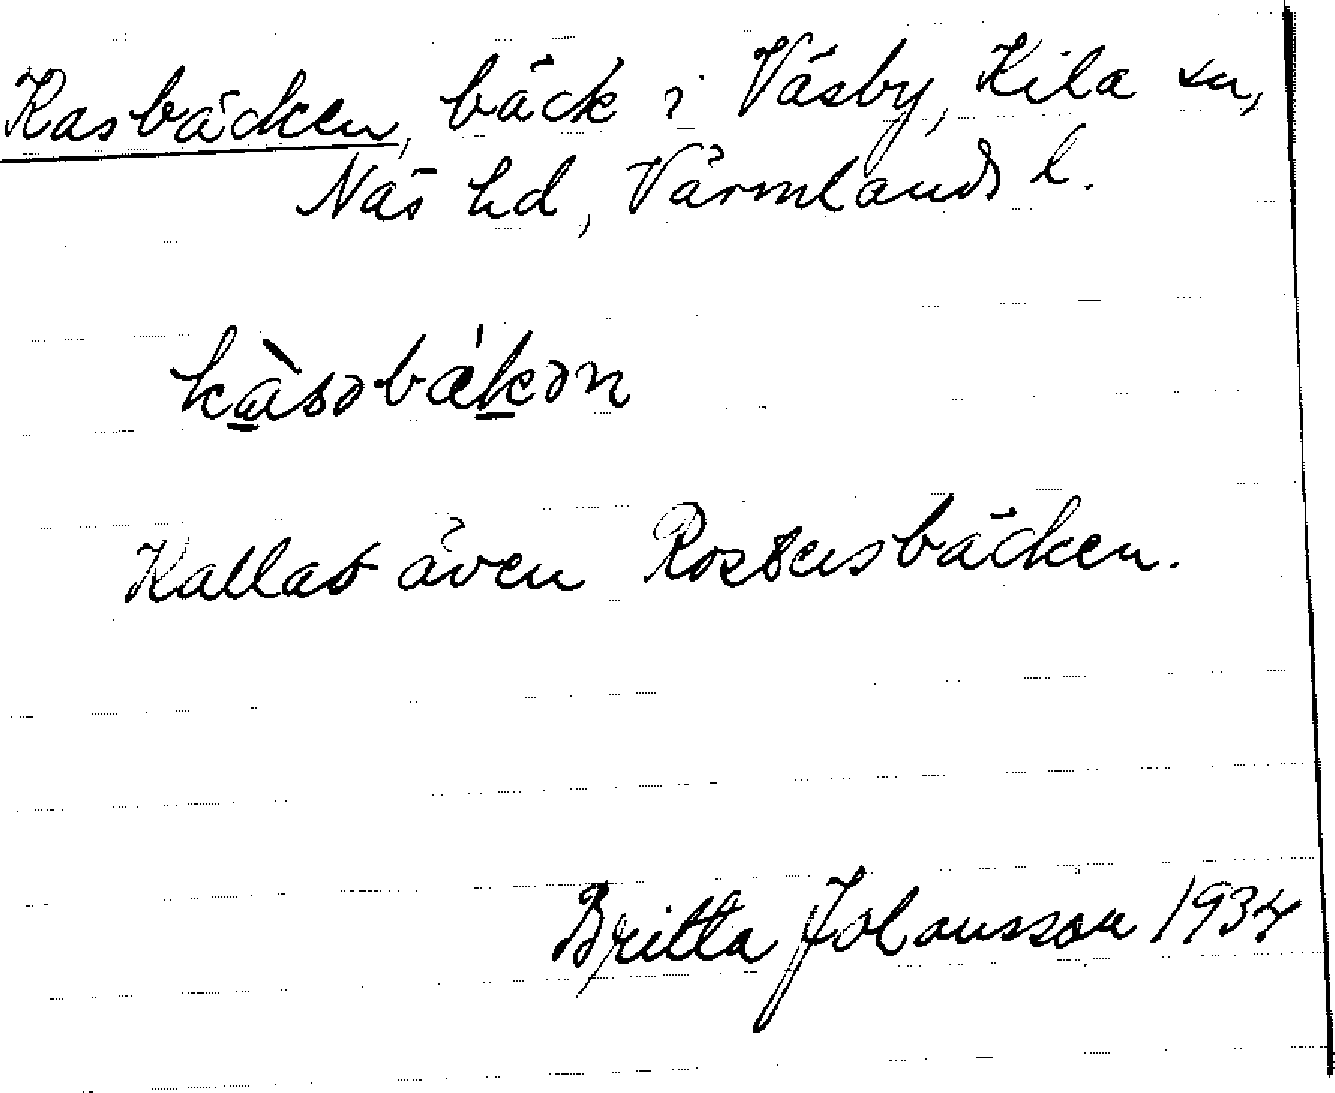 Kasbäcken, bäck i Väsby, Kila sn,
Näs hd, Värmlands l.
kàsəbäkən
Kallas även Rostensbäcken.
Britta Johansson 1934